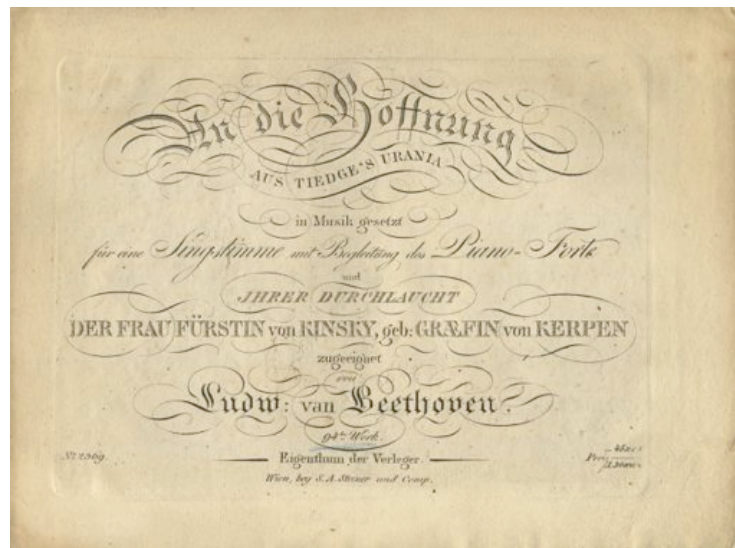 An die Hoffnung
AUS TIEDGE'S URANIA
in Musik gesetzt
für eine Singstimme mit Begleitung des Piano-Forte
und
JHRER DURCHLAUCHT
DER FRAU FÜRSTIN von KINSKY, geb: GRÆFIN von KERPEN
zugeeignet
von
Ludw: van Beethoven.
94tes Werk.
Nº 2369. Eigenthum der Verleger. Preis
Wien, bey S. A. Steiner und Comp.